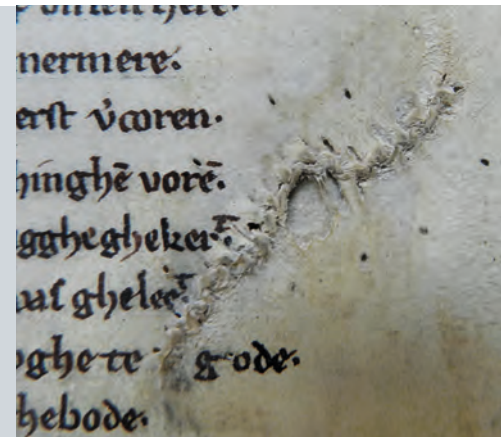 nermere.
erst v̉coren.
hinghē vorē.
gghegheker͛t.
was gheleẽt.
oghe te gode.
hebode.